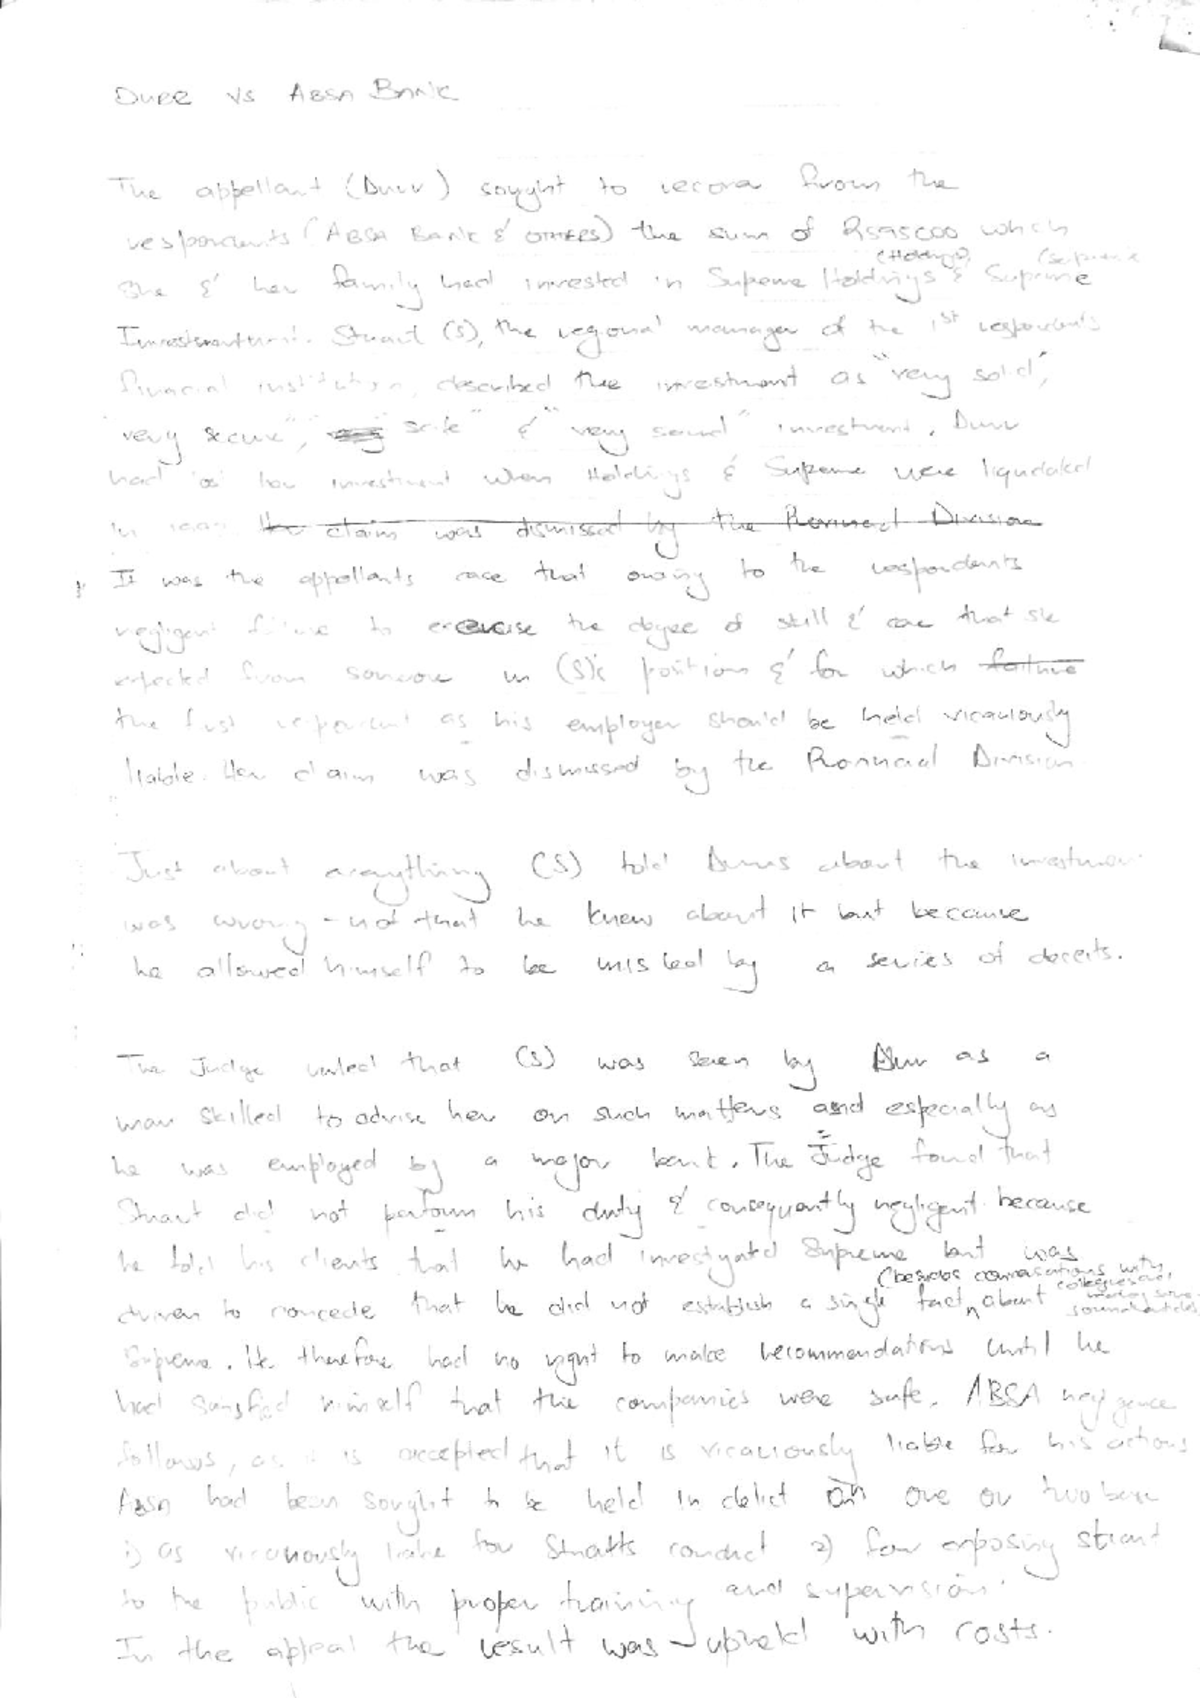 Durr vs ABSA Bank
The appellant (Durr) sought to recover from the
respondents (ABSA Bank & OTHERS) the sum of R595000 which
(Holdings) (Supreme
She & her family had invested in Supreme Holdings & Supreme
Investment. Stuart (S), the regional manager of the 1st respondents
financial institution, described the investment as "very solid",
"very secure", safe" & "very sound" investment. Durr
had her investment when Holdings & Supreme were liquidated
In her claim was dismissed by the Provincial Division
It was the appellants case that owing to the respondents
negligent failure to exercise the degree of skill & care that she
expected from someone in (S)'s position & for which failure
the first respondent as his employer should be held vicariously
liable. Her claim was dismissed by the Provincial Division
Just about anything (S) told Durrs about the investment
was wrong - not that he knew about it but because
he allowed himself to be misled by a series of deceits.
The Judge ruled that (S) was seen by Durr as a
man skilled to advise her on such matters and especially as
he was employed by a major bank. The Judge found that
Stuart did not perform his duty & consequently negligent because
he told his clients that he had investigated Supreme but was
(besides conversations with colleagues
driven to concede that he did not establish a single fact about
Supreme. He therefore had no right to make recommendations until he
had satisfied himself that the companies were safe. ABSA negligence
follows, as it is accepted that it is vicariously liable for his actions
Absa had been sought to be held in delict on one or two base
i) as vicariously liable for Stuatts conduct 2) for exposing Stuart
to the public with proper training and supervision.
In the appeal the result was upheld with costs.